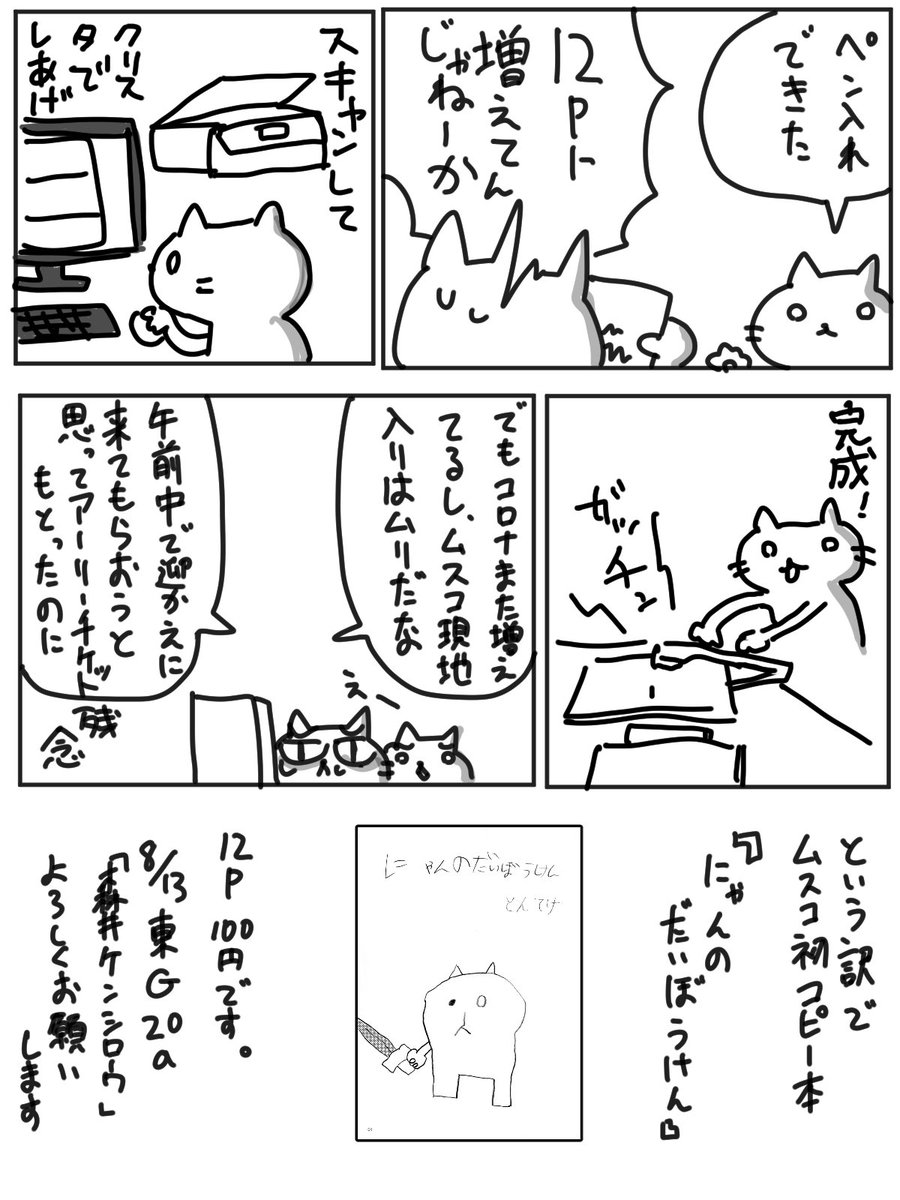 ペン入れ
できた
12Pに
増えてん
じゃねーか
スキャンして
クリス
タで
しあげ
完成!
ガッ
チン
でもコロナまた増え
てるし、ムスコ現地
入りはムリだな
え
午前中で迎かえに
来てもらおうと
思ってアーリーチケット
もとったのに
残
念
という訳で
ムスコ初コピー本
『にゃんの
だいぼうけん』
にゃんのだいぼうけん
とんてけ
12P 100円です。
8/13 東G20a
「森井ケンシロウ」
よろしくお願い
します